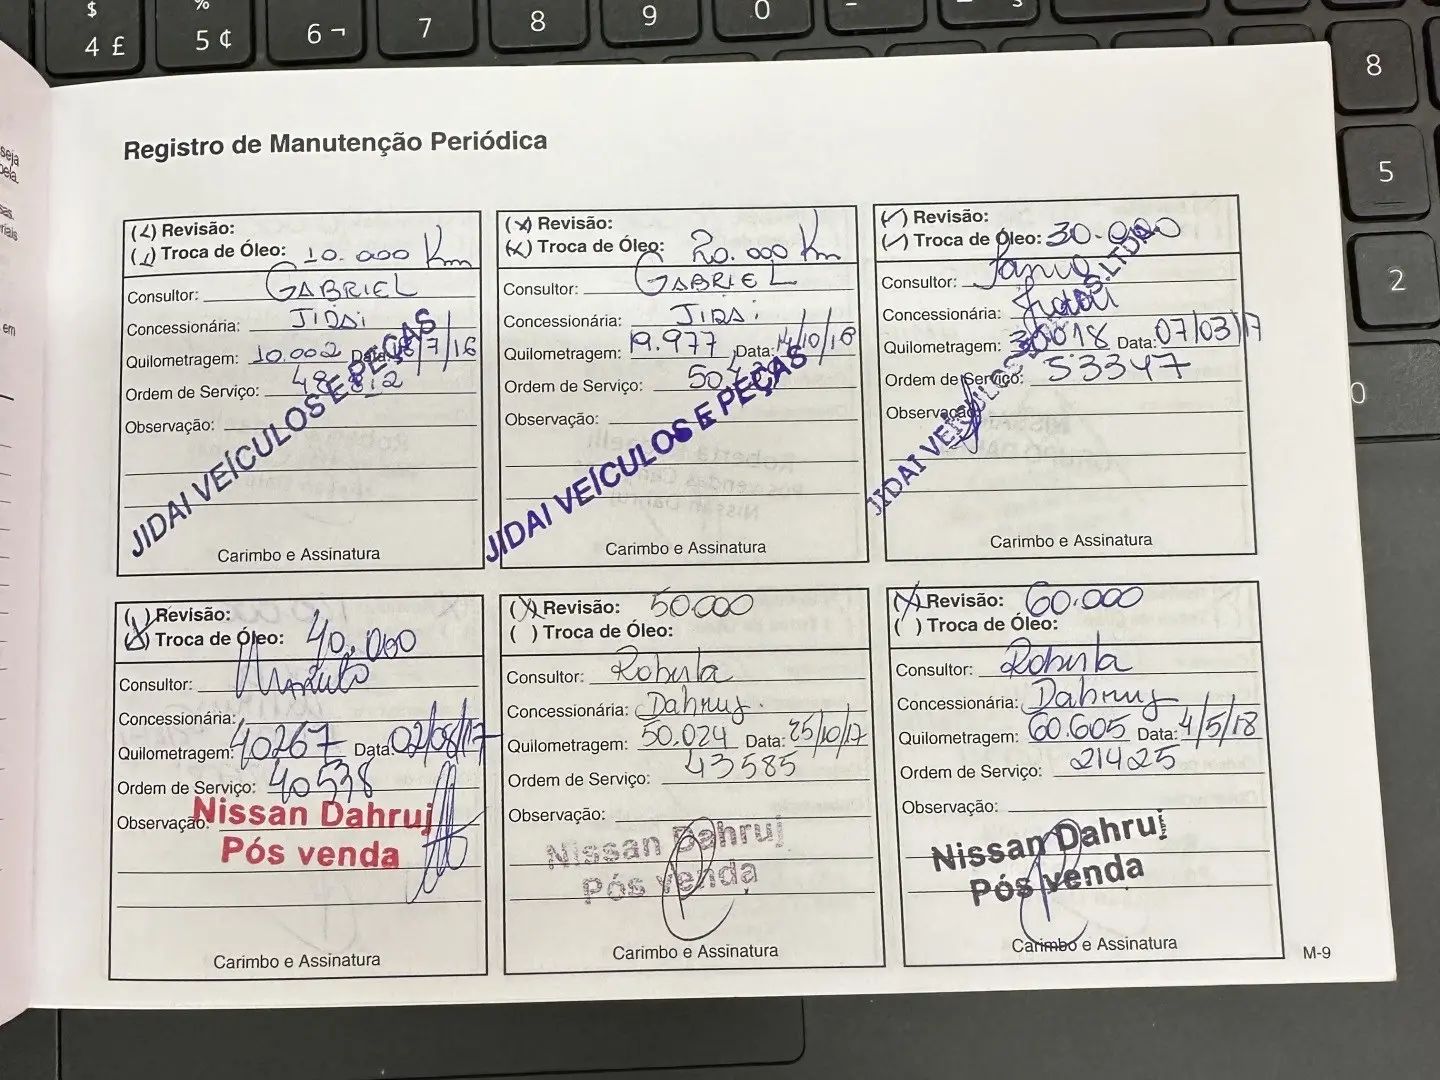 $
4 £
%
5 ¢
6 ¬
7
8
9
0
8
5
2
0
seja
pela.
sas.
riais
em
Registro de Manutenção Periódica
Revisão:
Troca de Óleo: 10.000 Km
Consultor: GABRIEL
Concessionária: JIDAI
Quilometragem: 10.002 Data: /7/16
Ordem de Serviço:
Observação:
JIDAI VEÍCULOS E PEÇAS
Carimbo e Assinatura
(X) Revisão:
(X) Troca de Óleo: 20.000 Km
Consultor: GABRIEL
Concessionária: JIDAI
Quilometragem: 19.977 Data: 14/10/16
Ordem de Serviço:
Observação:
JIDAI VEÍCULOS E PEÇAS
Carimbo e Assinatura
(✓) Revisão:
(✓) Troca de Óleo: 30.000
Consultor:
Concessionária:
Quilometragem: 30018 Data: 07/03/17
Ordem de Serviço: 53347
Observação:
JIDAI VEÍCULOS LTDA.
Carimbo e Assinatura
Revisão:
Troca de Óleo: 40.000
Consultor:
Concessionária:
Quilometragem: 40267 Data: 02/08/17
Ordem de Serviço: 40538
Observação:
Nissan Dahruj
Pós venda
Carimbo e Assinatura
(X) Revisão: 50.000
( ) Troca de Óleo:
Consultor: Roberta
Concessionária: Dahruj.
Quilometragem: 50.024 Data: 25/10/17
Ordem de Serviço: 43585
Observação:
Nissan Dahruj
Pós Venda
Carimbo e Assinatura
(X) Revisão: 60.000
( ) Troca de Óleo:
Consultor: Roberta
Concessionária: Dahruj
Quilometragem: 60.605 Data: 4/5/18
Ordem de Serviço: 21425
Observação:
Nissan Dahruj
Pós venda
Carimbo e Assinatura
M-9